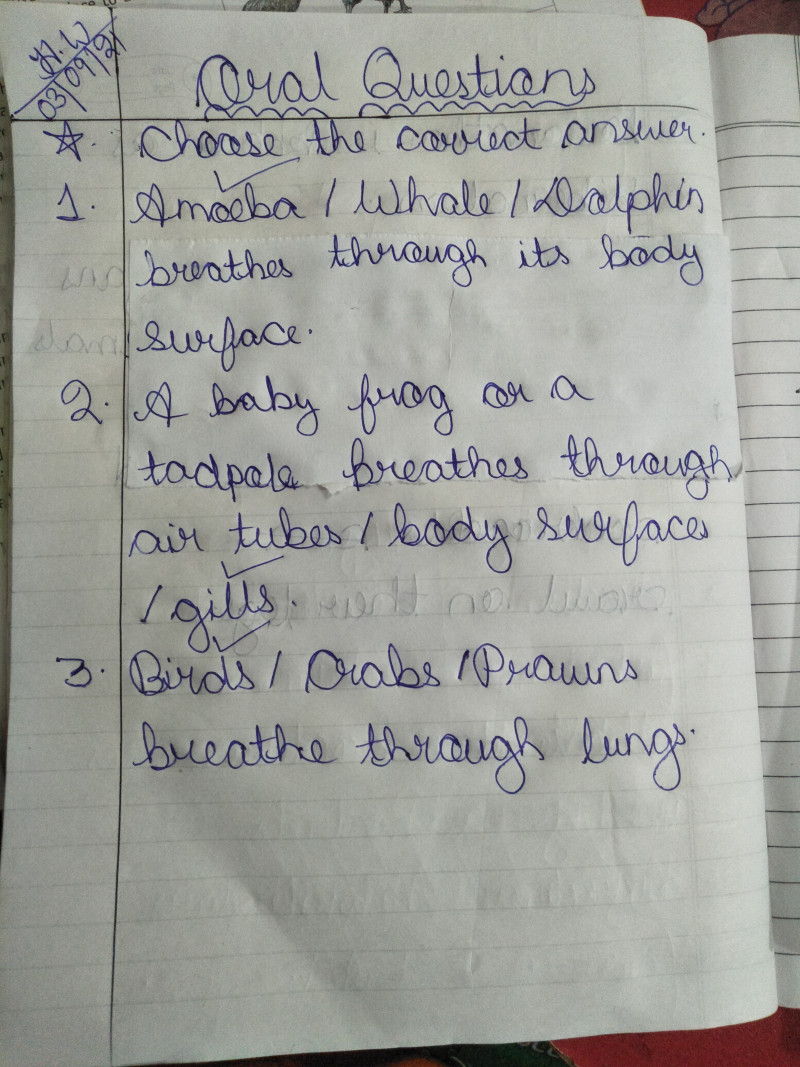 H.W
03/09/21
Oral Questions
☆. Choose the correct answer.
1. Amoeba / Whale / Dolphin
breathes through its body
surface.
2. A baby frog or a
tadpole breathes through
air tubes / body surfaces
/ gills.
3. Birds / Crabs / Prawns
breathe through lungs.